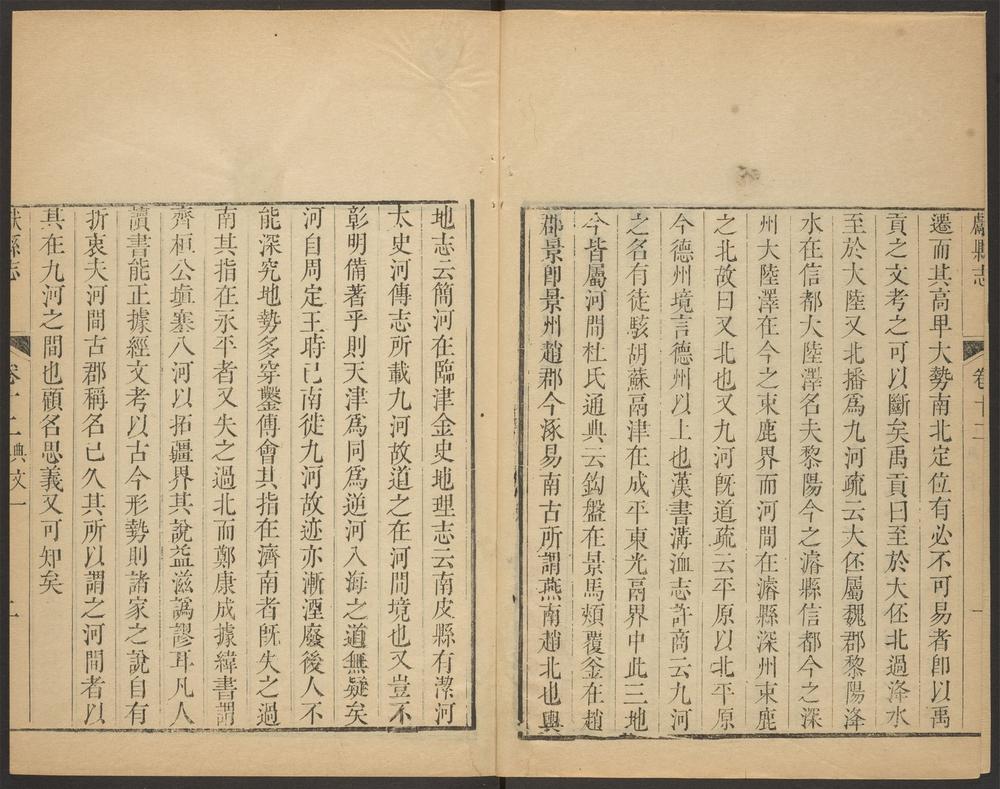 獻縣志
卷十二
一
遷而其高卑大勢南北定位有必不可易者卽以禹
貢之文考之可以斷矣禹貢曰至於大伾北過洚水
至於大陸又北播爲九河疏云大伾屬魏郡黎陽洚
水在信都大陸澤名夫黎陽今之濬縣信都今之深
州大陸澤在今之束鹿界而河間在濬縣深州束鹿
之北故曰又北也又九河旣道疏云平原以北平原
今德州境言德州以上也漢書溝洫志許商云九河
之名有徒駭胡蘇鬲津在成平東光鬲界中此三地
今皆屬河間杜氏通典云鈎盤在景馬頰覆釜在趙
郡景卽景州趙郡今涿易南古所謂燕南趙北也輿
地志云簡河在臨津金史地理志云南皮縣有潔河
太史河傳志所載九河故道之在河間境也又豈不
彰明備著乎則天津爲同爲逆河入海之道無疑矣
河自周定王時已南徙九河故迹亦漸湮廢後人不
能深究地勢多穿鑿傅會其指在濟南者旣失之過
南其指在永平者又失之過北而鄭康成據緯書謂
齊桓公塡塞八河以拓疆界其說益滋譌謬耳凡人
讀書能正據經文考以古今形勢則諸家之說自有
折衷夫河間古郡稱名已久其所以謂之河間者以
其在九河之間也顧名思義又可知矣
獻縣志
卷十二 典文一
二